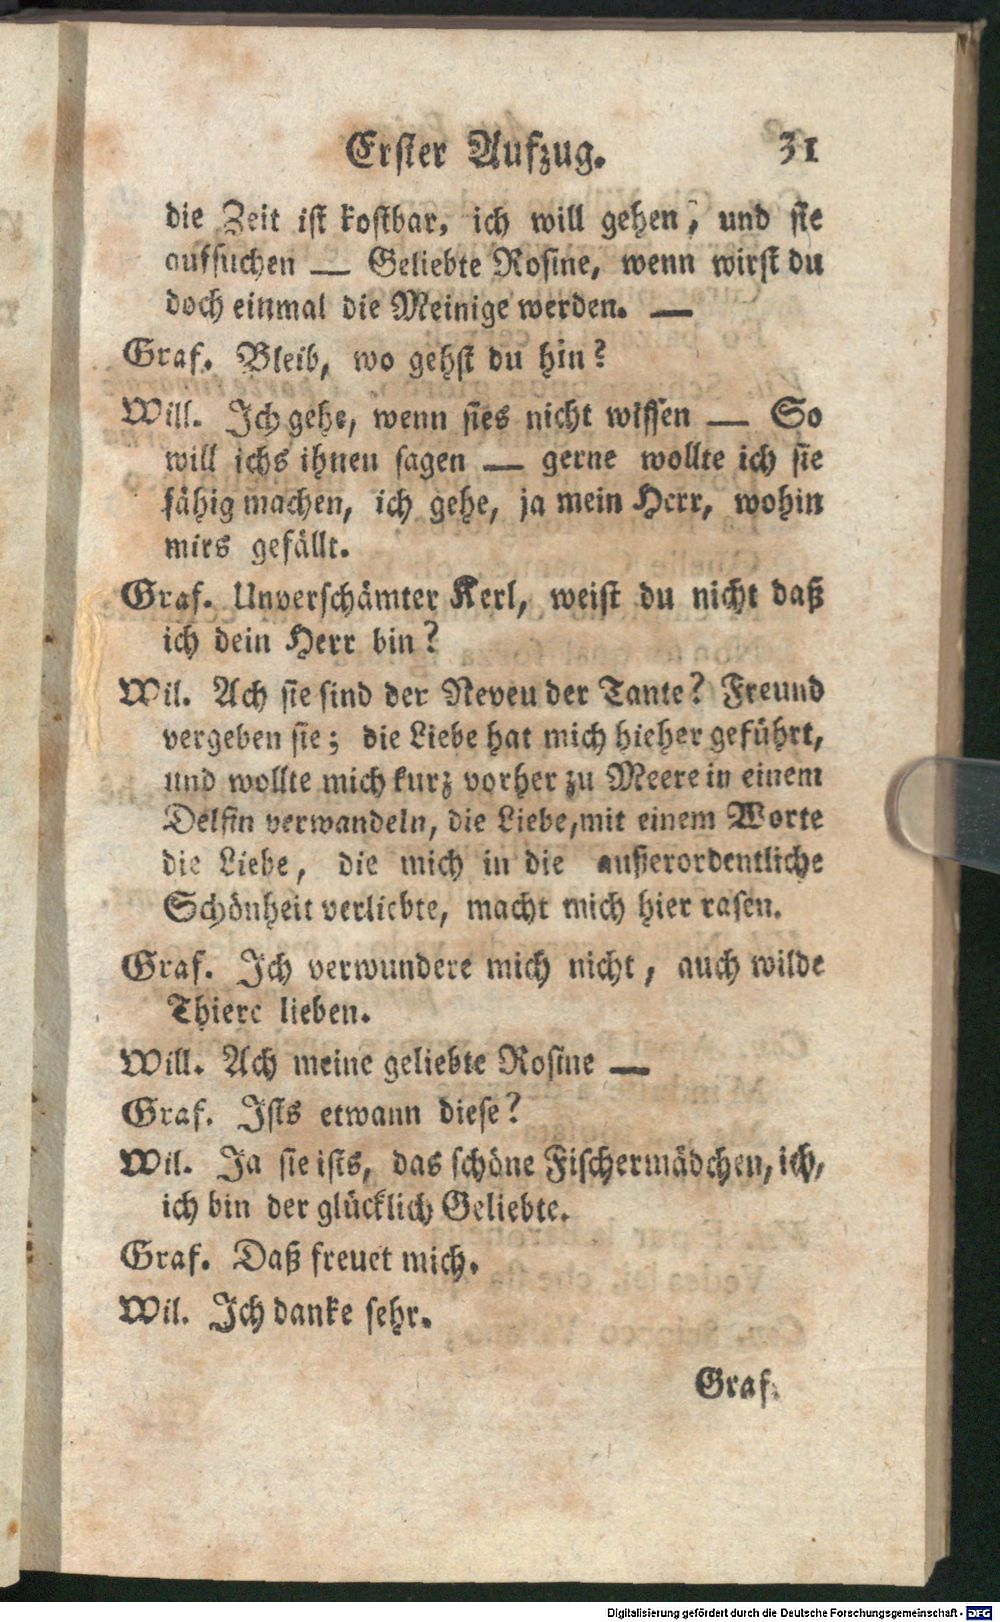 Erster Aufzug. 31
die Zeit ist kostbar, ich will gehen, und sie
aufsuchen — Geliebte Rosine, wenn wirst du
doch einmal die Meinige werden. —
Graf. Bleib, wo gehst du hin?
Will. Ich gehe, wenn sies nicht wissen — So
will ichs ihnen sagen — gerne wollte ich sie
fähig machen, ich gehe, ja mein Herr, wohin
mirs gefällt.
Graf. Unverschämter Kerl, weist du nicht daß
ich dein Herr bin?
Wil. Ach sie sind der Neveu der Tante? Freund
vergeben sie; die Liebe hat mich hieher geführt,
und wollte mich kurz vorher zu Meere in einem
Delfin verwandeln, die Liebe, mit einem Worte
die Liebe, die mich in die ausserordentliche
Schönheit verliebte, macht mich hier rasen.
Graf. Ich verwundere mich nicht, auch wilde
Thiere lieben.
Will. Ach meine geliebte Rosine —
Graf. Ists etwann diese?
Wil. Ja sie ists, das schöne Fischermädchen, ich,
ich bin der glücklich Geliebte.
Graf. Daß freuet mich.
Wil. Ich danke sehr.
Graf.
Digitalisierung gefördert durch die Deutsche Forschungsgemeinschaft - DFG